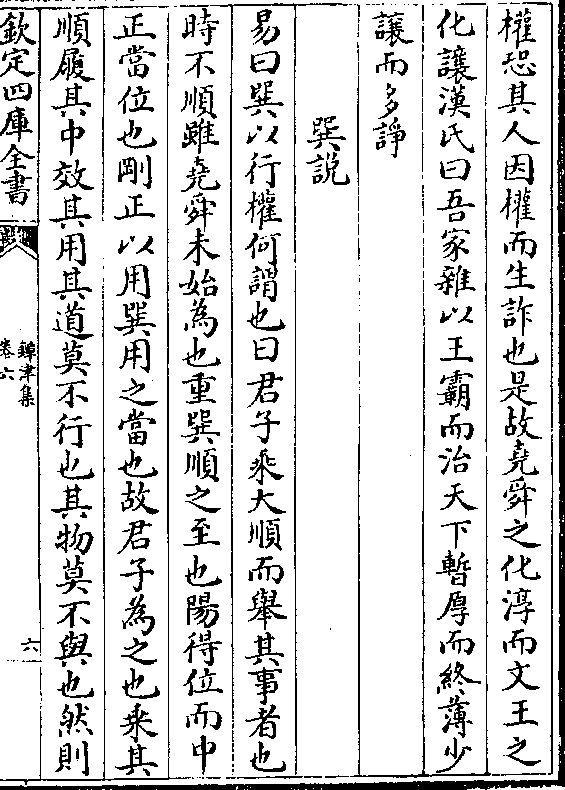 權恐其人因權而生詐也是故堯舜之化淳而文王之
化讓漢氏曰吾家雜以王霸而治天下暫厚而終薄少
讓而多諍
巽説
易曰巽以行權何謂也曰君子乘大順而舉其事者也
時不順雖堯舜未始為也重巽順之至也陽得位而中
正當位也剛正以用巽用之當也故君子為之也乘其
順履其中效其用其道莫不行也其物莫不與也然則
欽定四庫全書
鐔津集
卷六
六